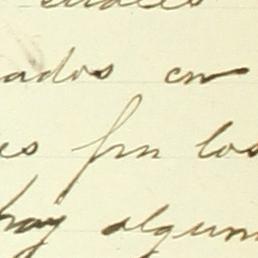 ados en
es fin los
hay algun